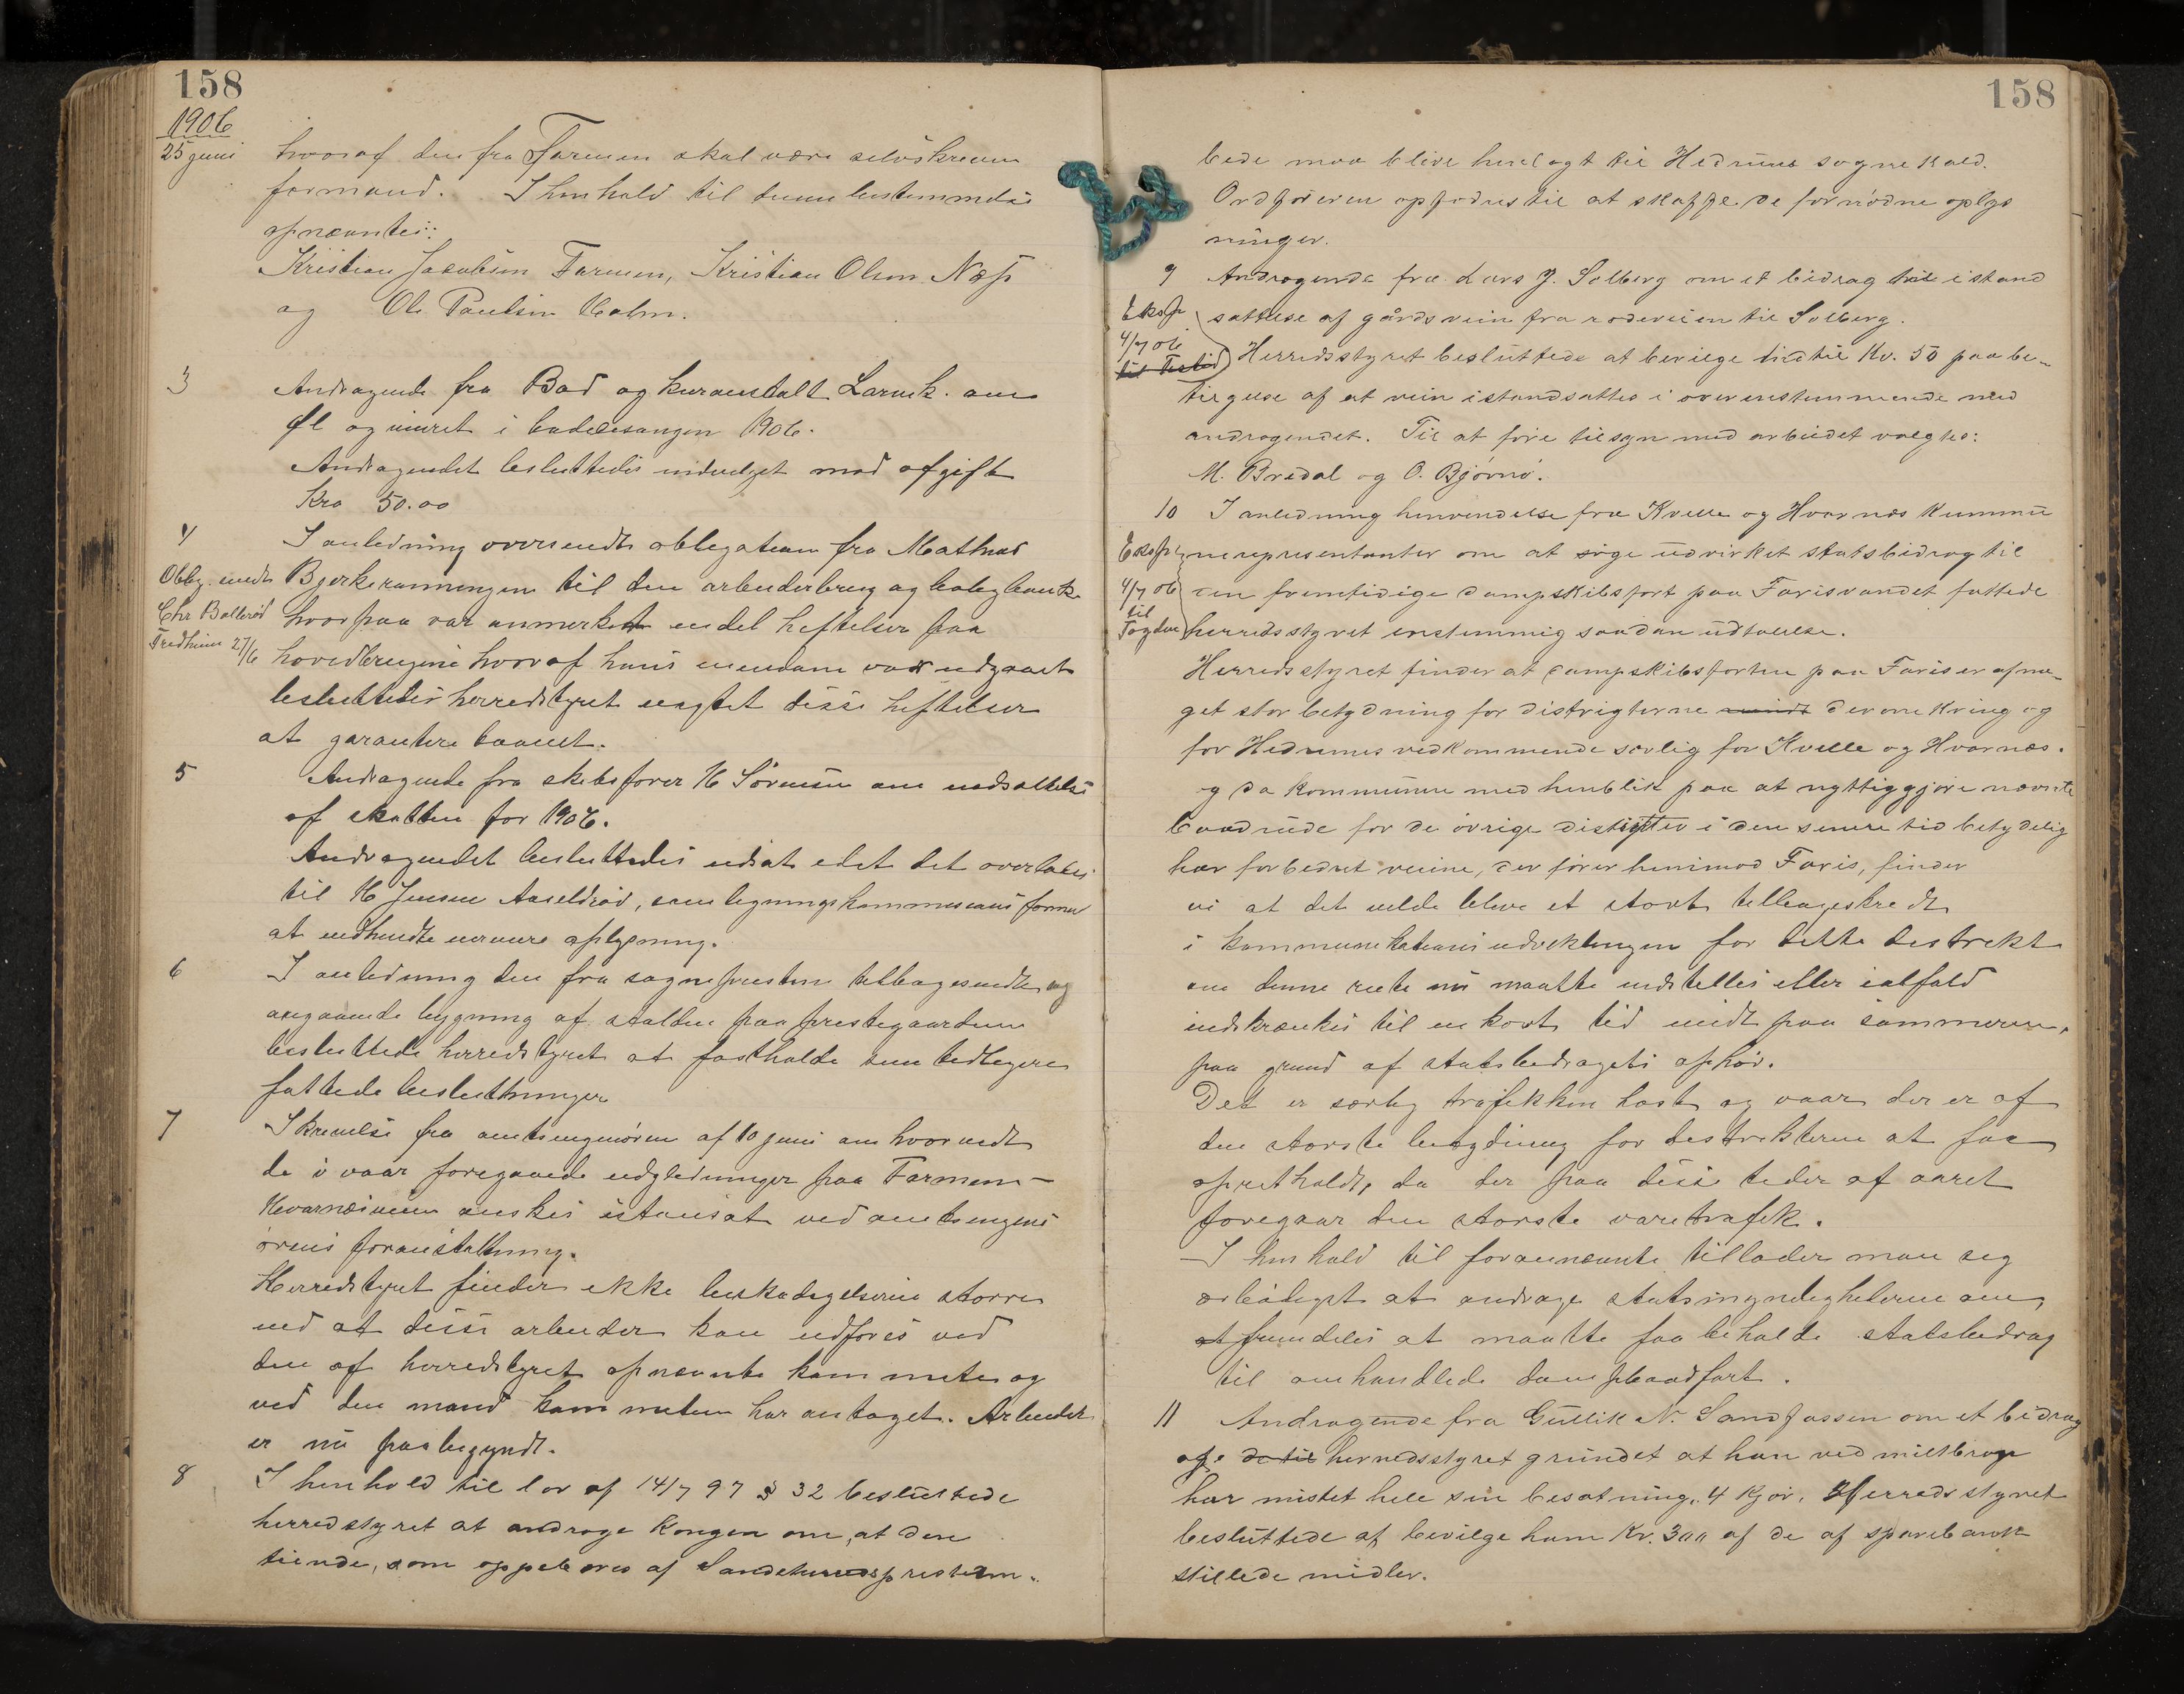 158
1906
25 juni
hvoraf den fra Farmen skal være selvskreven
formand. I henhold til denne bestemmelse
opnævntes:
Kristian Jacobsen Farmen, Kristian Olsen Næss
og Ole Paulsen Holm.
3 Andragende fra Bad og kuranstalt Larvik om
Øl og vinret i badesæsongen 1906.
Andragendet besluttedes indvilget mod afgift
Kro 50.00
4 I anledning oversendte obligation fra Mathias
Oblg. sendt
Chr Bollerød
Fredheim 27/6
Bjerkeranningen til den arbeiderbrug og boligbank
hvorpaa var anmerket en del heftelser paa
hovedbruget hvoraf hans eiendom var udgaaet
besluttedes herredstyret uagtet disse heftelser
at garantere laanet.
5 Andragende fra skibsfører H Sørensen om nedsættelse
af skatten for 1906.
Andragendet besluttedes udsat idet det overlodes
til H Jensen Aaseldrød, som ligningskommissions formand
at indhendte nærmere oplysning.
6 I anledning den fra sognepresten tilbagesendte sag
angaaende bygning af stalden paa prestegaarden
besluttede herredstyret at fastholde sine tidligere
fattede beslutninger
7 Skrivelse fra amtsingeniøren af 10 juni om hvorvidt
de i vaar foregaaede udglidninger paa Farmen-
Kvarnesveien ønskes istandsat ved amtsingeni
ørens foranstaltning.
Herredstyret finder ikke beskadigelserne større
end at disse arbeider kan udføres ved
den af herredstyret opnævnte kommite og
ved den mand kommiteen har antaget. Arbeidet
er nu paabegyndt.
8 I henhold til lov af 14/7 97 § 32 besluttede
herredstyret at androge Kongen om, at den
tiende, som oppebæres af Sandeherredspresten.
158
bede maa blive henlagt til Hedrums sognekald.
Ordføreren opfodres til at skaffe de fornødne oplys
ninger.
9 Andragende fra Lars J. Solberg om et bidrag til istand
Eksp
4/7 06
til Tostid
sættelse af gårdsveien fra rodeveien til Solberg.
Herredsstyret besluttede at bevilge indtil Kr. 50 paa be-
tingelse af at veien istandsættes i overenstemmende med
andragendet. Til at føre tilsyn med arbeidet valgtes:
M. Bredal og O. Bjørnø.
10 I anledning henvendelse fra Kvelle og Hvarnæs kommu
Eksp
4/7 06
til
Fogden
nerepresentanter om at søge udvirket statsbidrag til
den fremtidige dampskibsfart paa Farisvandet fattede
herredsstyret enstemmig saadan udtalelse.
Herredsstyret finder at dampskibsfarten paa Faris er af me-
get stor betydning for distrigterne rundt deromkring og
for Hedrums vedkommende særlig for Kvelle og Hvarnæs.
og da kommunen med henblik paa at nyttiggjøre nævnte
baadrude for de øvrige distrigter i den senere tid betydelig
har forbedret veiene, der fører henimod Faris, finder
vi at det vilde blive et stort tilbageskridt
i kommunikationsudviklingen for dette distrikt
om denne rute nu maatte indstilles eller ialfald
indskrænkes til en kort tid midt paa sommeren,
paa grund af statsbidragets ophør.
Det er særlig trafikken høst og vaar der er af
den største betydning for distrikterne at faa
opretholdt, da der paa disse tider af aaret
foregaar den største varetrafik.
I henhold til forannævnte tillader man seg
ærbødigst at andrage statsmyndighederne om,
at fremdeles at maatte faa beholde statsbidrag
til omhandlede dampbaadfart.
11 Andragende fra Gullik N. Sandfossen om et bidrag
af de til herredsstyret grundet at han ved miltbrand
har mistet hele sin besætning, 4 kjør. Herredsstyret
besluttede at bevilge ham Kr. 300 af de af sparebank
stillede midler.